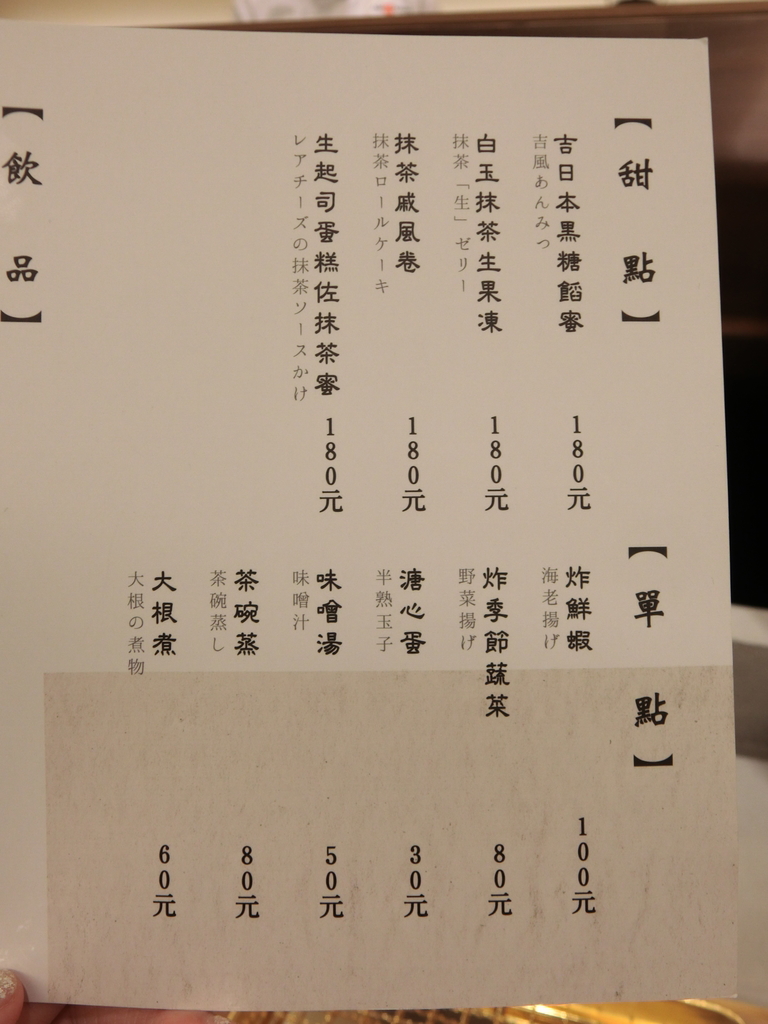 【甜點】
吉日本黑糖餡蜜
吉風あんみつ
180元
白玉抹茶生果凍
抹茶「生」ゼリー
180元
抹茶戚風卷
抹茶ロールケーキ
180元
生起司蛋糕佐抹茶蜜
レアチーズの抹茶ソースかけ
180元
【單點】
炸鮮蝦
海老揚げ
100元
炸季節蔬菜
野菜揚げ
80元
溏心蛋
半熟玉子
30元
味噌湯
味噌汁
50元
茶碗蒸
茶碗蒸し
80元
大根煮
大根の煮物
60元
【飲品】